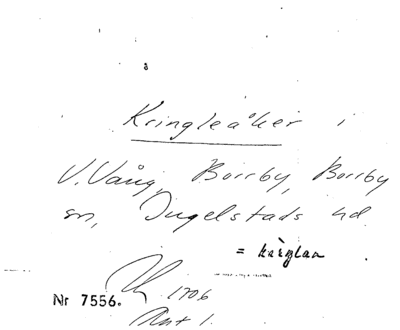 Kringleåker i
V. Vång, Borrby, Borrby
sn, Ingelstads hd
= kringlan
1706
Nr 7556.
Akt 1.